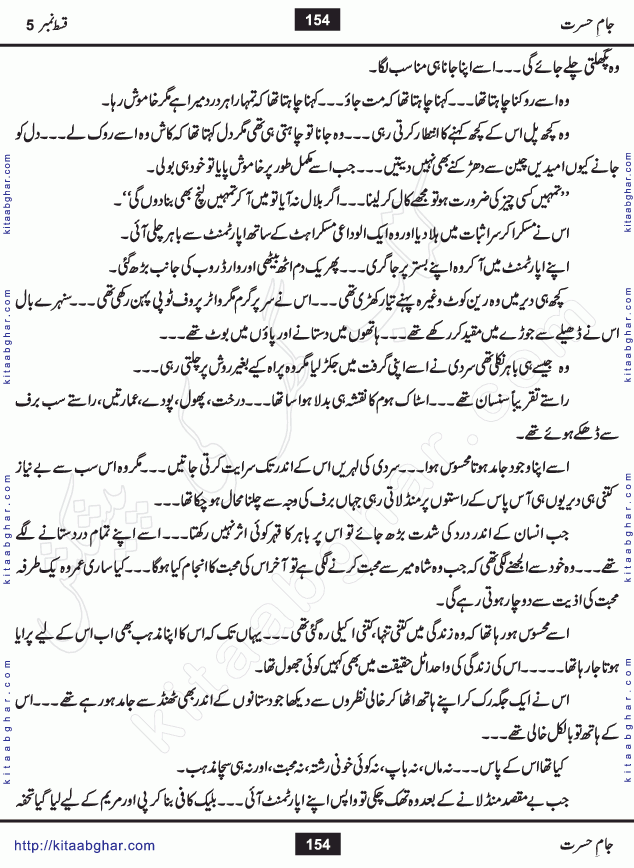 جامِ حسرت 154 قسط نمبر 5
وہ پگھلتی چلے جائے گی۔۔۔اسے اپنا جانا ہی مناسب لگا۔
وہ اسے روکنا چاہتا تھا۔۔۔کہنا چاہتا تھا کہ مت جاؤ۔۔۔کہنا چاہتا تھا کہ تمہارا ہر درد میرا ہے مگر خاموش رہا۔
وہ کچھ پل اس کے کچھ کہنے کا انتظار کرتی رہی۔۔۔وہ جانا تو چاہتی ہی تھی مگر دل کہتا تھا کہ کاش وہ اسے روک لے۔۔۔دل کو
جانے کیوں امیدیں چین سے دھڑکنے بھی نہیں دیتیں۔۔۔جب اسے مکمل طور پر خاموش پایا تو خود ہی بولی۔
’’تمہیں کسی چیز کی ضرورت ہو تو مجھے کال کر لینا۔۔۔اگر بلال نہ آیا تو میں آ کر تمہیں لنچ بھی بنا دوں گی‘‘۔
اس نے مسکرا کر سر اثبات میں ہلا دیا اور وہ ایک الوداعی مسکراہٹ کے ساتھ اپارٹمنٹ سے باہر چلی آئی۔
اپنے اپارٹمنٹ میں آ کر وہ اپنے بستر پر جا گری۔۔۔پھر یک دم اٹھ بیٹھی اور وارڈ روب کی جانب بڑھ گئی۔
کچھ ہی دیر میں وہ رین کوٹ وغیرہ پہنے تیار کھڑی تھی۔۔۔اس نے سر پر گرم مگر واٹر پروف ٹوپی پہن رکھی تھی۔۔۔سنہرے بال
اس نے ڈھیلے سے جوڑے میں مقید کر رکھے تھے۔۔۔ہاتھوں میں دستانے اور پاؤں میں بوٹ تھے۔۔۔
وہ جیسے ہی باہر نکلی تھی سردی نے اسے اپنی گرفت میں جکڑ لیا مگر وہ پراہ کیے بغیر روش پر چلتی رہی۔۔۔
راستے تقریباً سنسان تھے۔۔۔اسٹاک ہوم کا نقشہ ہی بدلا ہوا سا تھا۔۔۔درخت، پھول، پودے، عمارتیں، راستے سب برف
سے ڈھکے ہوئے تھے۔
اسے اپنا وجود جامد ہوتا محسوس ہوا۔۔۔سردی کی لہریں اس کے اندر تک سرایت کرتی جاتیں۔۔۔مگر وہ اس سب سے بے نیاز
کتنی ہی دیر یوں ہی آس پاس کے راستوں پر منڈلاتی رہی جہاں برف کی وجہ سے چلنا محال ہو چکا تھا۔۔۔
جب انسان کے اندر درد کی شدت بڑھ جائے تو اس پر باہر کا قہر کوئی اثر نہیں رکھتا۔۔۔اسے اپنے تمام درد ستانے لگے
تھے۔۔۔وہ خود سے الجھنے لگی تھی کہ جب وہ شاہ میر سے محبت کرنے لگی ہے تو آخر اس کی محبت کا انجام کیا ہوگا۔۔۔کیا ساری عمر وہ یک طرفہ
محبت کی اذیت سے دوچار ہوتی رہے گی۔
اسے محسوس ہو رہا تھا کہ وہ زندگی میں کتنی تنہا، کتنی اکیلی رہ گئی تھی۔۔۔یہاں تک کہ اس کا اپنا مذہب بھی اب اس کے لیے پرایا
ہوتا جا رہا تھا۔۔۔۔۔اس کی زندگی کی واحد اٹل حقیقت میں بھی کہیں کوئی جھول تھا۔
اس نے ایک جگہ رک کر اپنے ہاتھ اٹھا کر خالی نظروں سے دیکھا جو دستانوں کے اندر بھی ٹھنڈ سے جامد ہو رہے تھے۔۔۔اس
کے ہاتھ تو بالکل خالی تھے۔۔۔
کیا تھا اس کے پاس۔۔۔نہ ماں، نہ باپ، نہ کوئی خونی رشتہ، نہ محبت، اور نہ ہی سچا مذہب۔
جب بے مقصد منڈلانے کے بعد وہ تھک چکی تو واپس اپنے اپارٹمنٹ آئی۔۔۔بلیک کافی بنا کر پی اور مریم کے لیے لیا گیا تحفہ
http://kitaabghar.com 154 جامِ حسرت
kitaabghar.com
kitaabghar.com
kitaabghar.com
kitaabghar.com
kitaabghar.com
kitaabghar.com
kitaabghar.com
kitaabghar.com
کتاب گھر کی پیشکش
kitaabghar.com